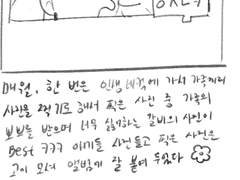 매월, 한 번은 인생네컷에 가서 가족끼리
사진을 찍기로 해서 찍은 사진 중 가족의
뽀뽀를 받으며 너무 싫어하는 갈비의 사진이
Best ㅋㅋㅋ 아기들 사진 들고 찍은 사진은
고이 모셔 앨범에 잘 붙여 두었다